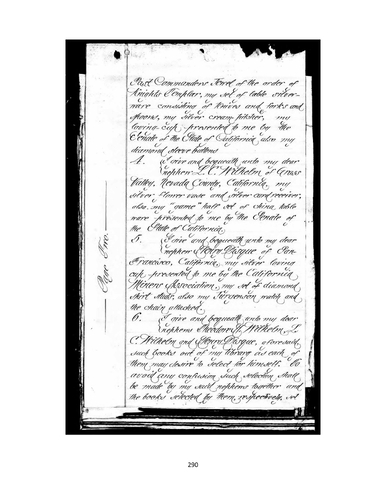 Past Commanders Jewel of the order of
Knights Templar, my set of table silver-
ware consisting of knives and forks and
spoons, my silver cream pitcher, my
loving cup, presented to me by the
Senate of the State of California, also my
diamond sleeve buttons
4. I give and bequeath unto my dear
nephew L. C. Wilhelm of Grass
Valley, Nevada County, California, my
silver flower vase and silver card receiver,
also, my "game" half set of china table
ware presented to me by the Senate of
the State of California.
5. I give and bequeath unto my dear
nephew of San
Francisco, California, my silver loving
cup, presented to me by the California
Miners Association, my set of diamond
shirt studs, also my Jurgenson watch and
the chain attached.
6. I give and bequeath unto my dear
nephews Theodore H. Wilhelm, L.
C. Wilhelm and aforesaid,
such books out of my library as each of
them may desire to select for himself. To
avoid any confusion such selection shall
be made by my said nephews together and
the books selected by them respectively, set
Page Two.
290